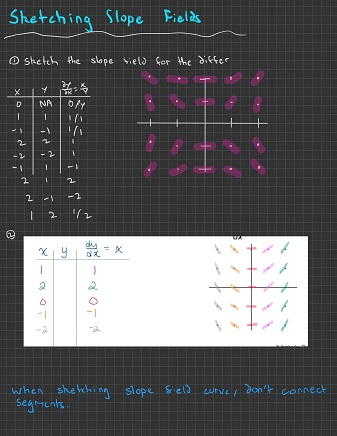 Sketching Slope Fields
① Sketch the slope field for the differ
x y dy/dx = x/y
0 NA 0/y
1 1 1/1
-1 -1 1/1
2 2 1
-2 -2 1
-1 1 -1
2 1 2
2 -1 -2
1 2 1/2
②
x y dy/dx = x
1 1
2 2
0 0
-1 -1
-2 -2
When sketching slope field curve, don't connect
segments.